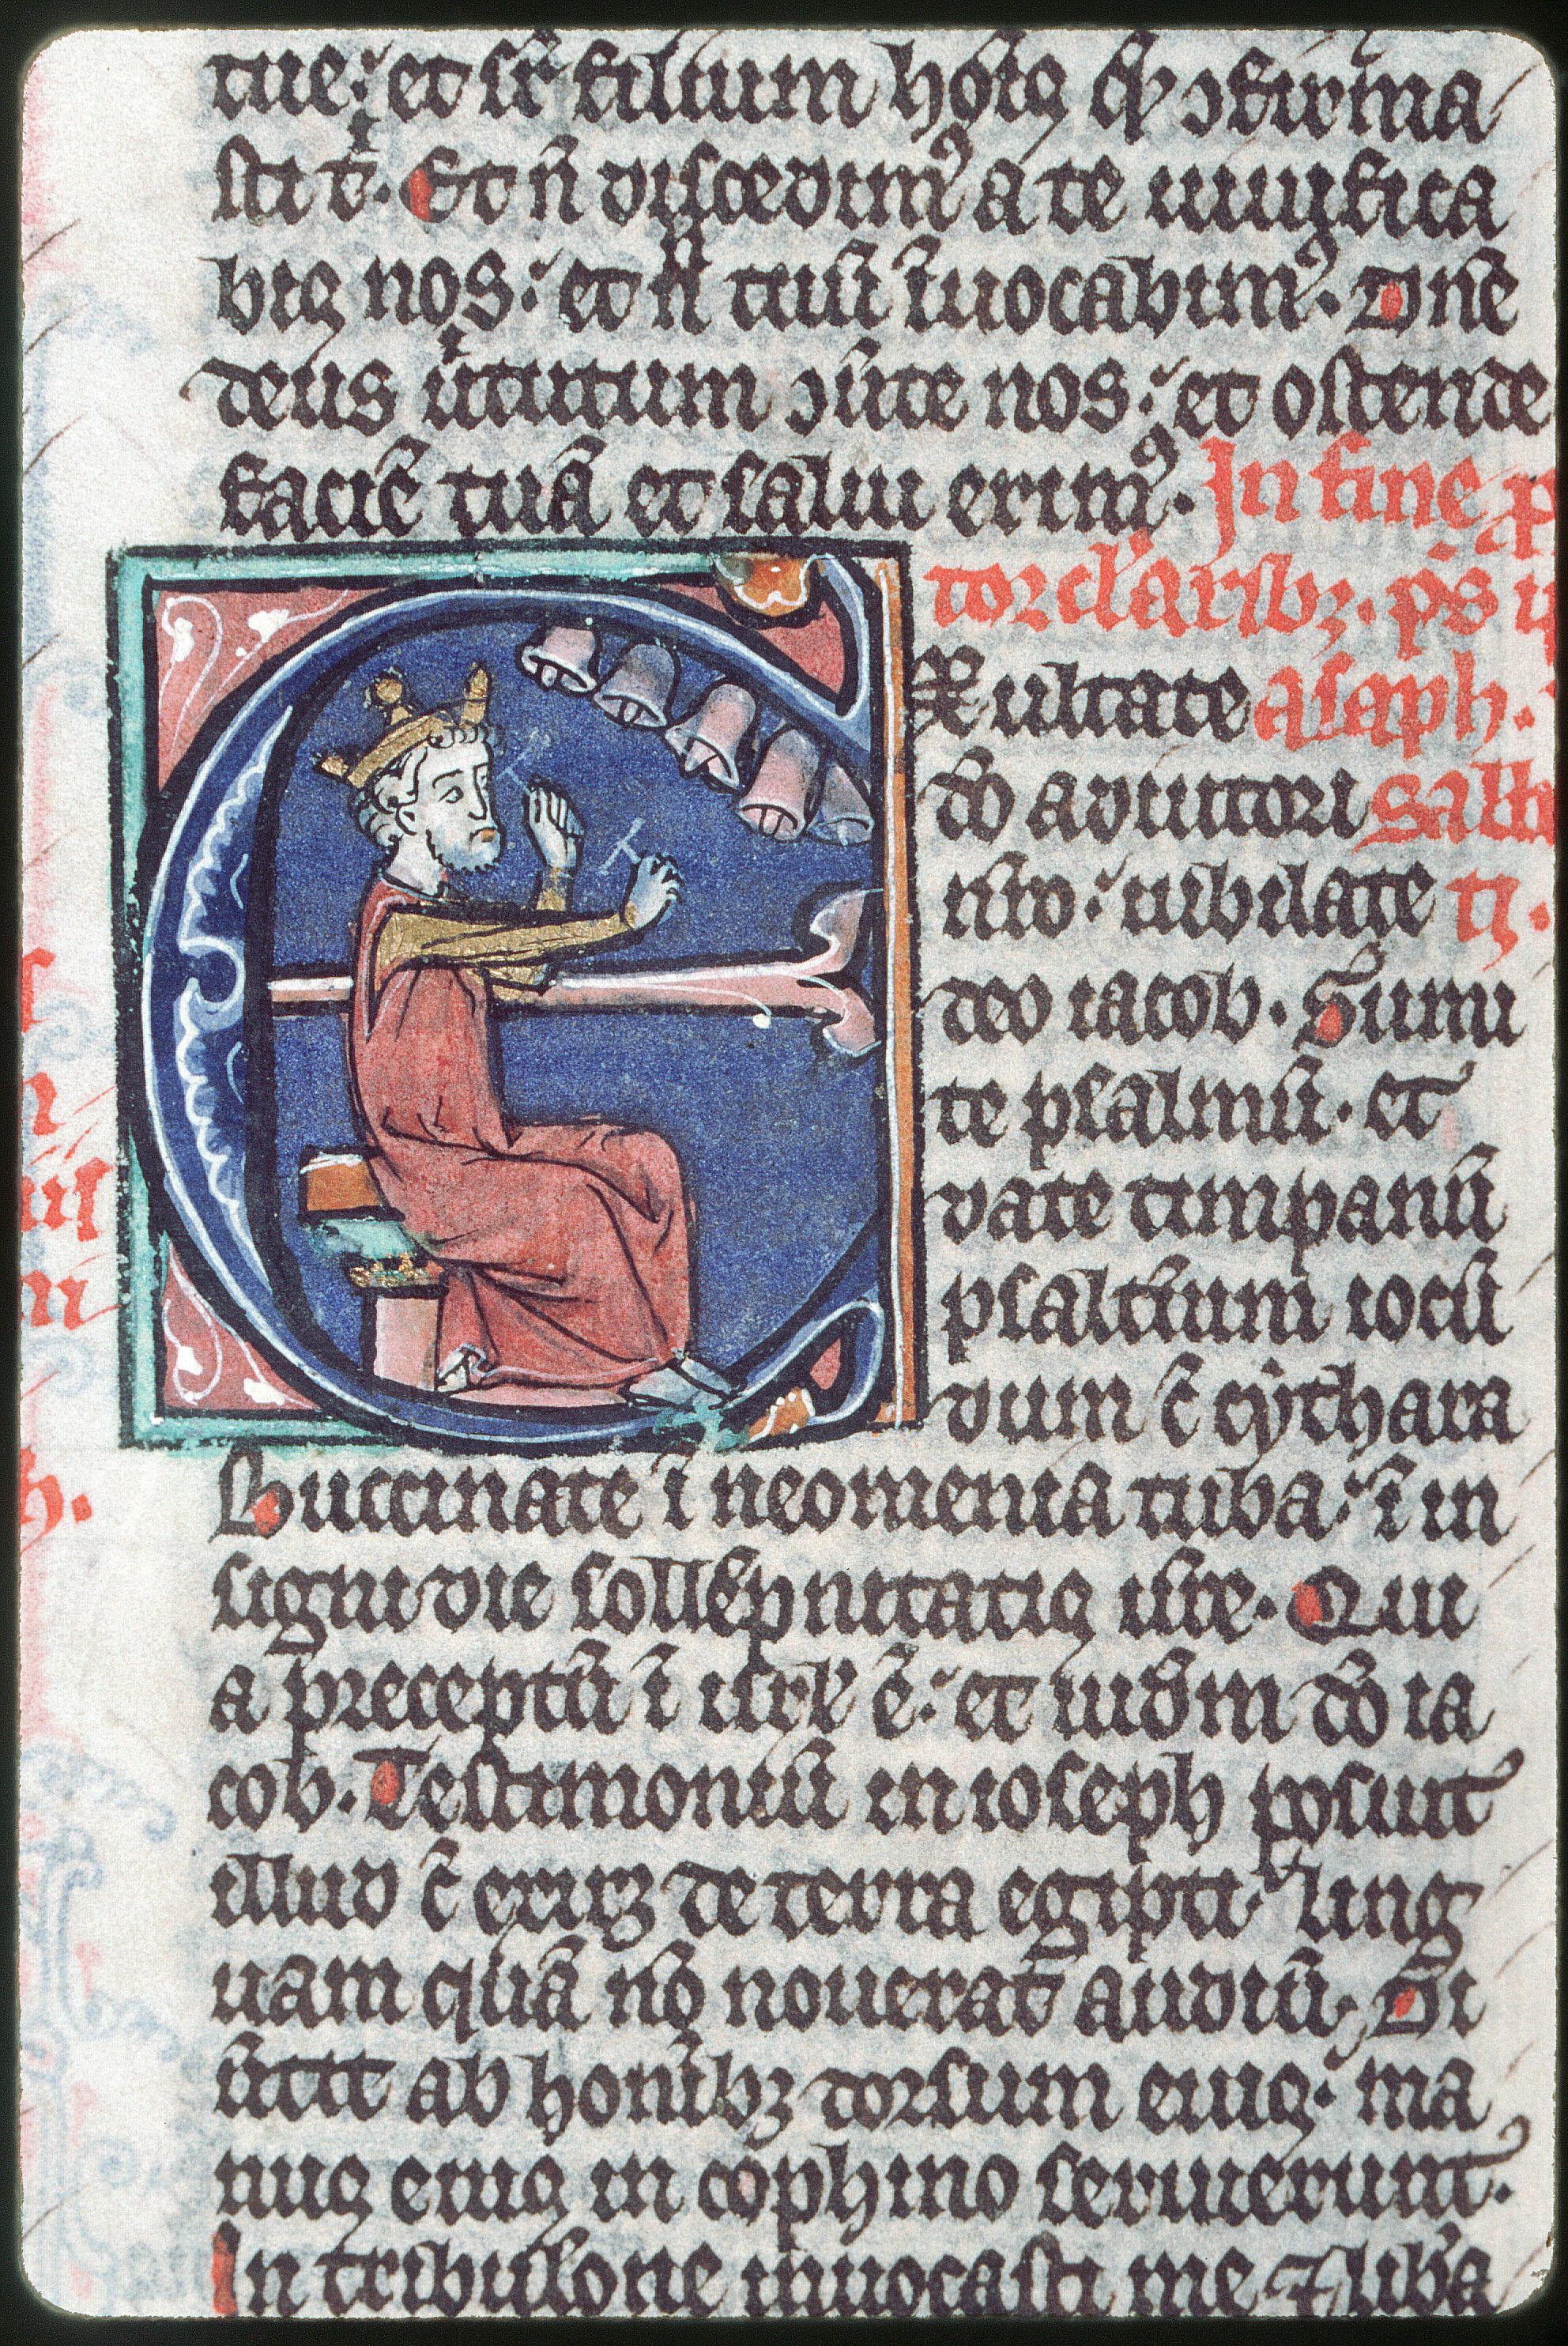 tue: et sr̄ filium hoīs q̄ ɔfirma
sti t̄. Et n̄ discedimꝰ a te uiuifica
bis nos: et n̄ tuū īuocabimꝰ. Dn̄e
deus u̾tutum ɔu̾te nos: et ostende
faciē tuā et salui erimꝰ. In finē p
torcl̾aribꝫ. ps̄
Exultate asaph.
dō adiutori
nr̄o: iubilate
deo iacob. Sumi
te psalmū. et
date timpanū
psalt̾ium iocū
dum c̄ cythara
Buccinate ī neomenia tuba: ī in
signi die sollempnitatis ur̄e. Qui
a preceptū ī isrl̄ ē: et iudm̄ dō ia
cob. Testimoniū in ioseph posuit
illud c̄ exiret de terra egipti: ling
uam quā nō nouerat audiū. Di
u̾tit ab honībꝫ dorsum eius: ma
nus eius in cophino seruierunt.
In tribulōne inuocasti me ⁊ lib̾a